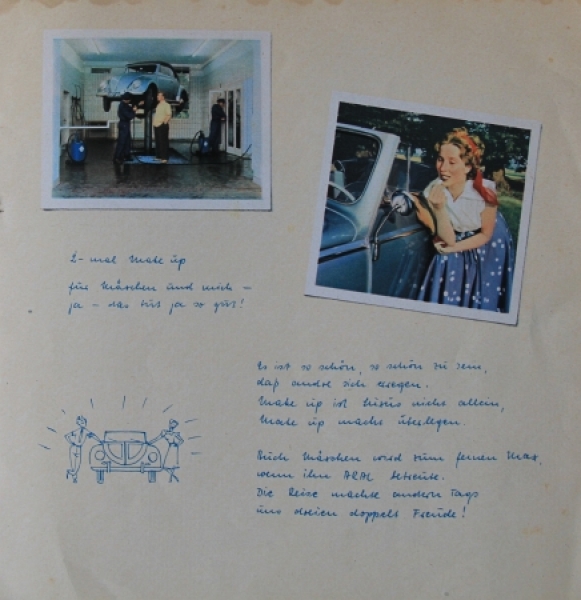 2-mal Make up
für Mäxchen und mich –
ja – das tut ja so gut!
Es ist so schön, so schön zu sein,
daß andre sich erregen.
Make up ist Luxus nicht allein,
Make up macht überlegen.
Auch Mäxchen wird zum feinen Max,
wenn ihn ARAL betreute.
Die Reise machte andern Tags
uns dreien doppelt Freude!